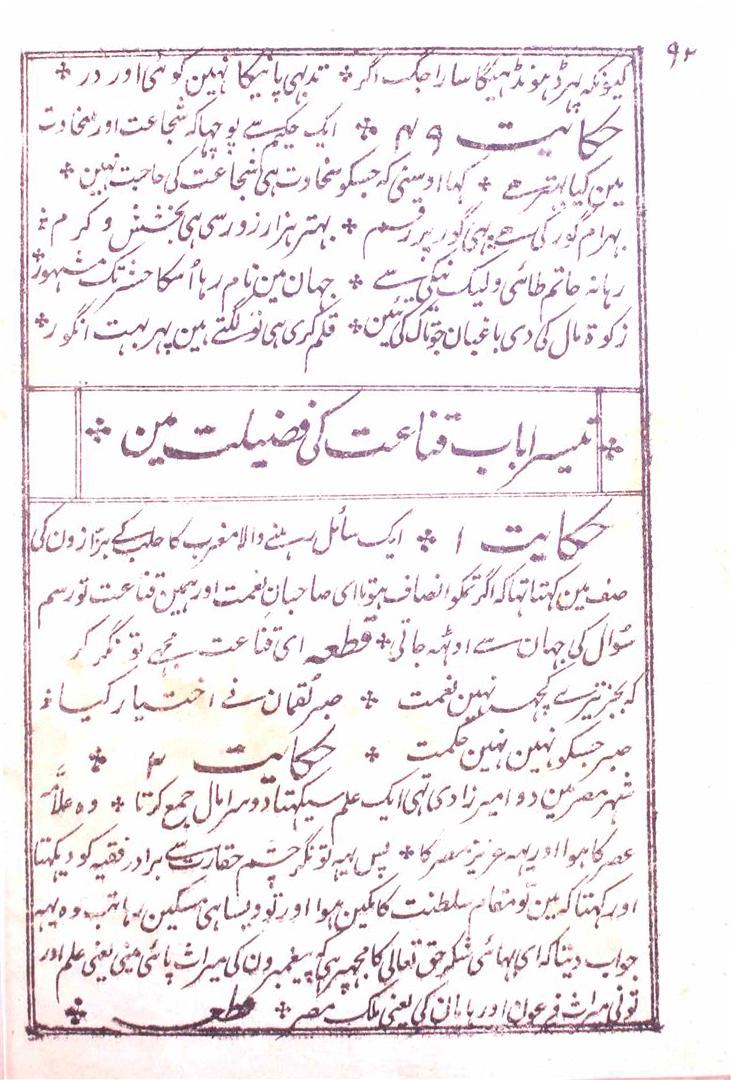 ۹۲
کیونکہ پہر ڈہونڈہیگا سارا جگ اگر ❖ تد بہی پائیگا نہین کوئی اور در ❖
حکایت ۴۹ ❖ ایک حکیم سے پوچہا کہ شجاعت اور سخاوت
مین کیا بہتر ہے ❖ کہا اوسنی کہ جسکو سخاوت ہی شجاعت کی حاجت نہین ❖
بہرام گور کی ہے یہی گور پر رقم ❖ بہتر ہزار زور سی ہی بخشش و کرم ❖
رہا نہ حاتم طائی ولیک نیکی سے ❖ جہان مین نام رہا اُسکا حشر تک مشہور ❖
زکوۃ مال کی دی باغبان جو تاک کی تئین ❖ قلم کری ہی تو لگتے ہین پہر بہت انگور ❖
❖ تیسرا باب قناعت کی فضیلت مین ❖
حکایت ۱ ❖ ایک سائل رہنے والا مغرب کا حلب کے بزازون کی
صف مین کہتا تہا کہ اگر تمکو انصاف ہوتا ای صاحبان نعمت اور ہمین قناعت تو رسم
سُوال کی جہان سے اوٹہہ جاتی ❖ قطعہ ای قناعت مجہے تونگر کر
کہ بجز تیرے کچہہ نہین نعمت ❖ صبر لُقمان نے اختیار کیا ❖
صبر جسکو نہین نہین حکمت ❖ حکایت ۲ ❖
شہر مصر مین دو امیرزادی تہی ایک علم سیکہتا دوسرا مال جمع کرتا ❖ وہ علاّمہ
عصر کا ہوا اور یہہ عزیز مصر کا ❖ پس یہہ تونگر چشم حقارت سے برادر فقیہ کو دیکہتا
اور کہتا کہ مین تو مقام سلطنت کا مکین ہوا اور تو ویسا ہی مسکین رہا تب وہ یہہ
جواب دیتا کہ ای بہائی شکر حق تعالی کا مجہپر ہی کہ پیغمبرون کی میراث پائی مینی یعنی علم اور
تونی میراث فرعون اور ہامان کی یعنی ملک مصر ❖ قطعہ ❖